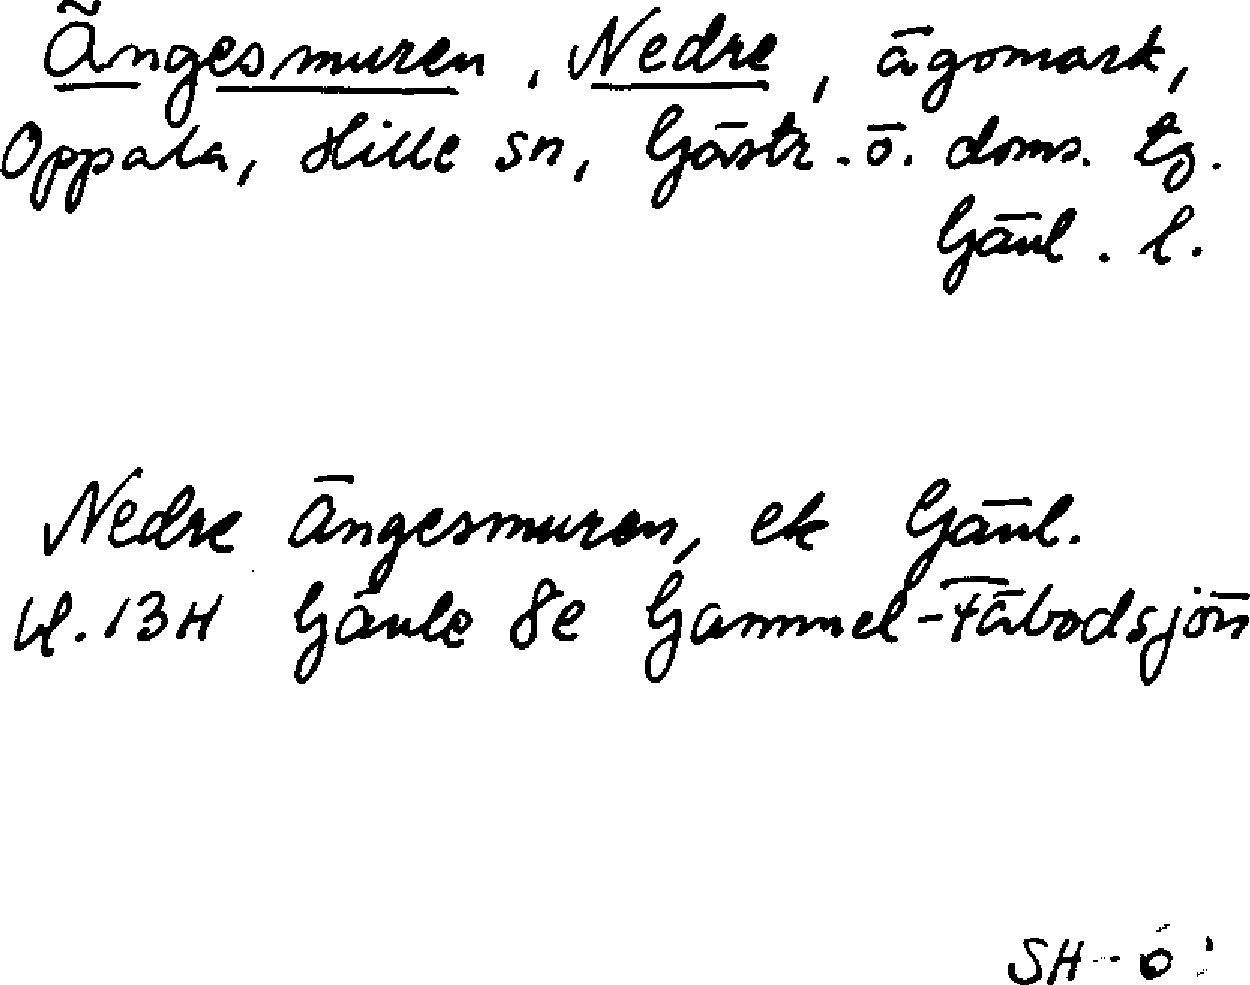 Ängesmuren, Nedre, ägomark,
Oppala, Hille sn, Gästr. ö. doms. tg.
Gävl. l.
Nedre Ängesmuren, ek Gävl.
bl. 13H Gävle 8e Gammel-Fäbodsjön
SH-ö